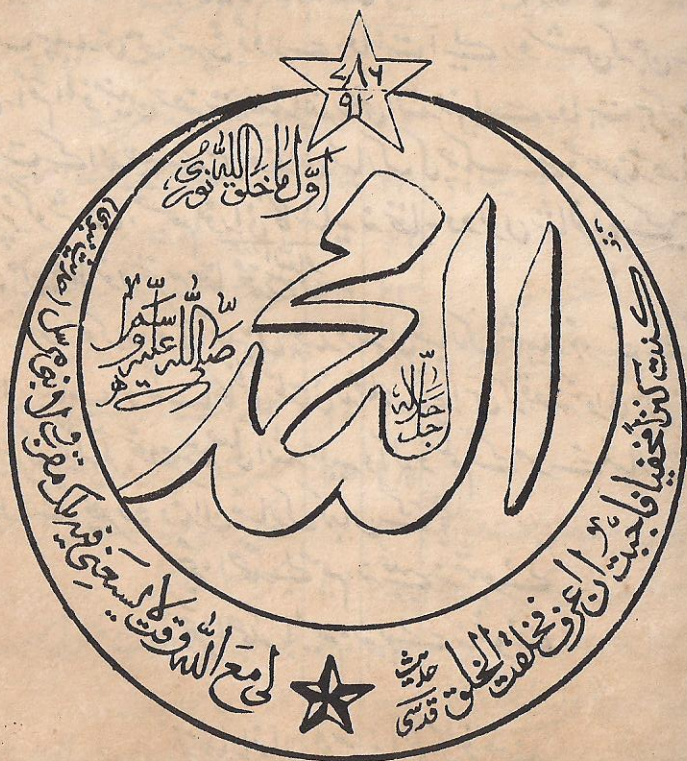 ۷۸۶
۹۲
اَوَّلُ مَا خَلَقَ اللّٰہُ نُوْرِیْ
اللہ
محمد
جَلَّ جَلَالُہٗ
صَلَّی اللّٰہُ عَلَیْہِ وَسَلَّمَ
کنت کنزا مخفیا فاحببت ان اعرف فخلقت الخلق
حدیث قدسی
لی مَعَ اللّٰہِ وقت لا یَسَعنِی فیہ ملک مقرب ولا نبی مرسل (حدیث نبوی)